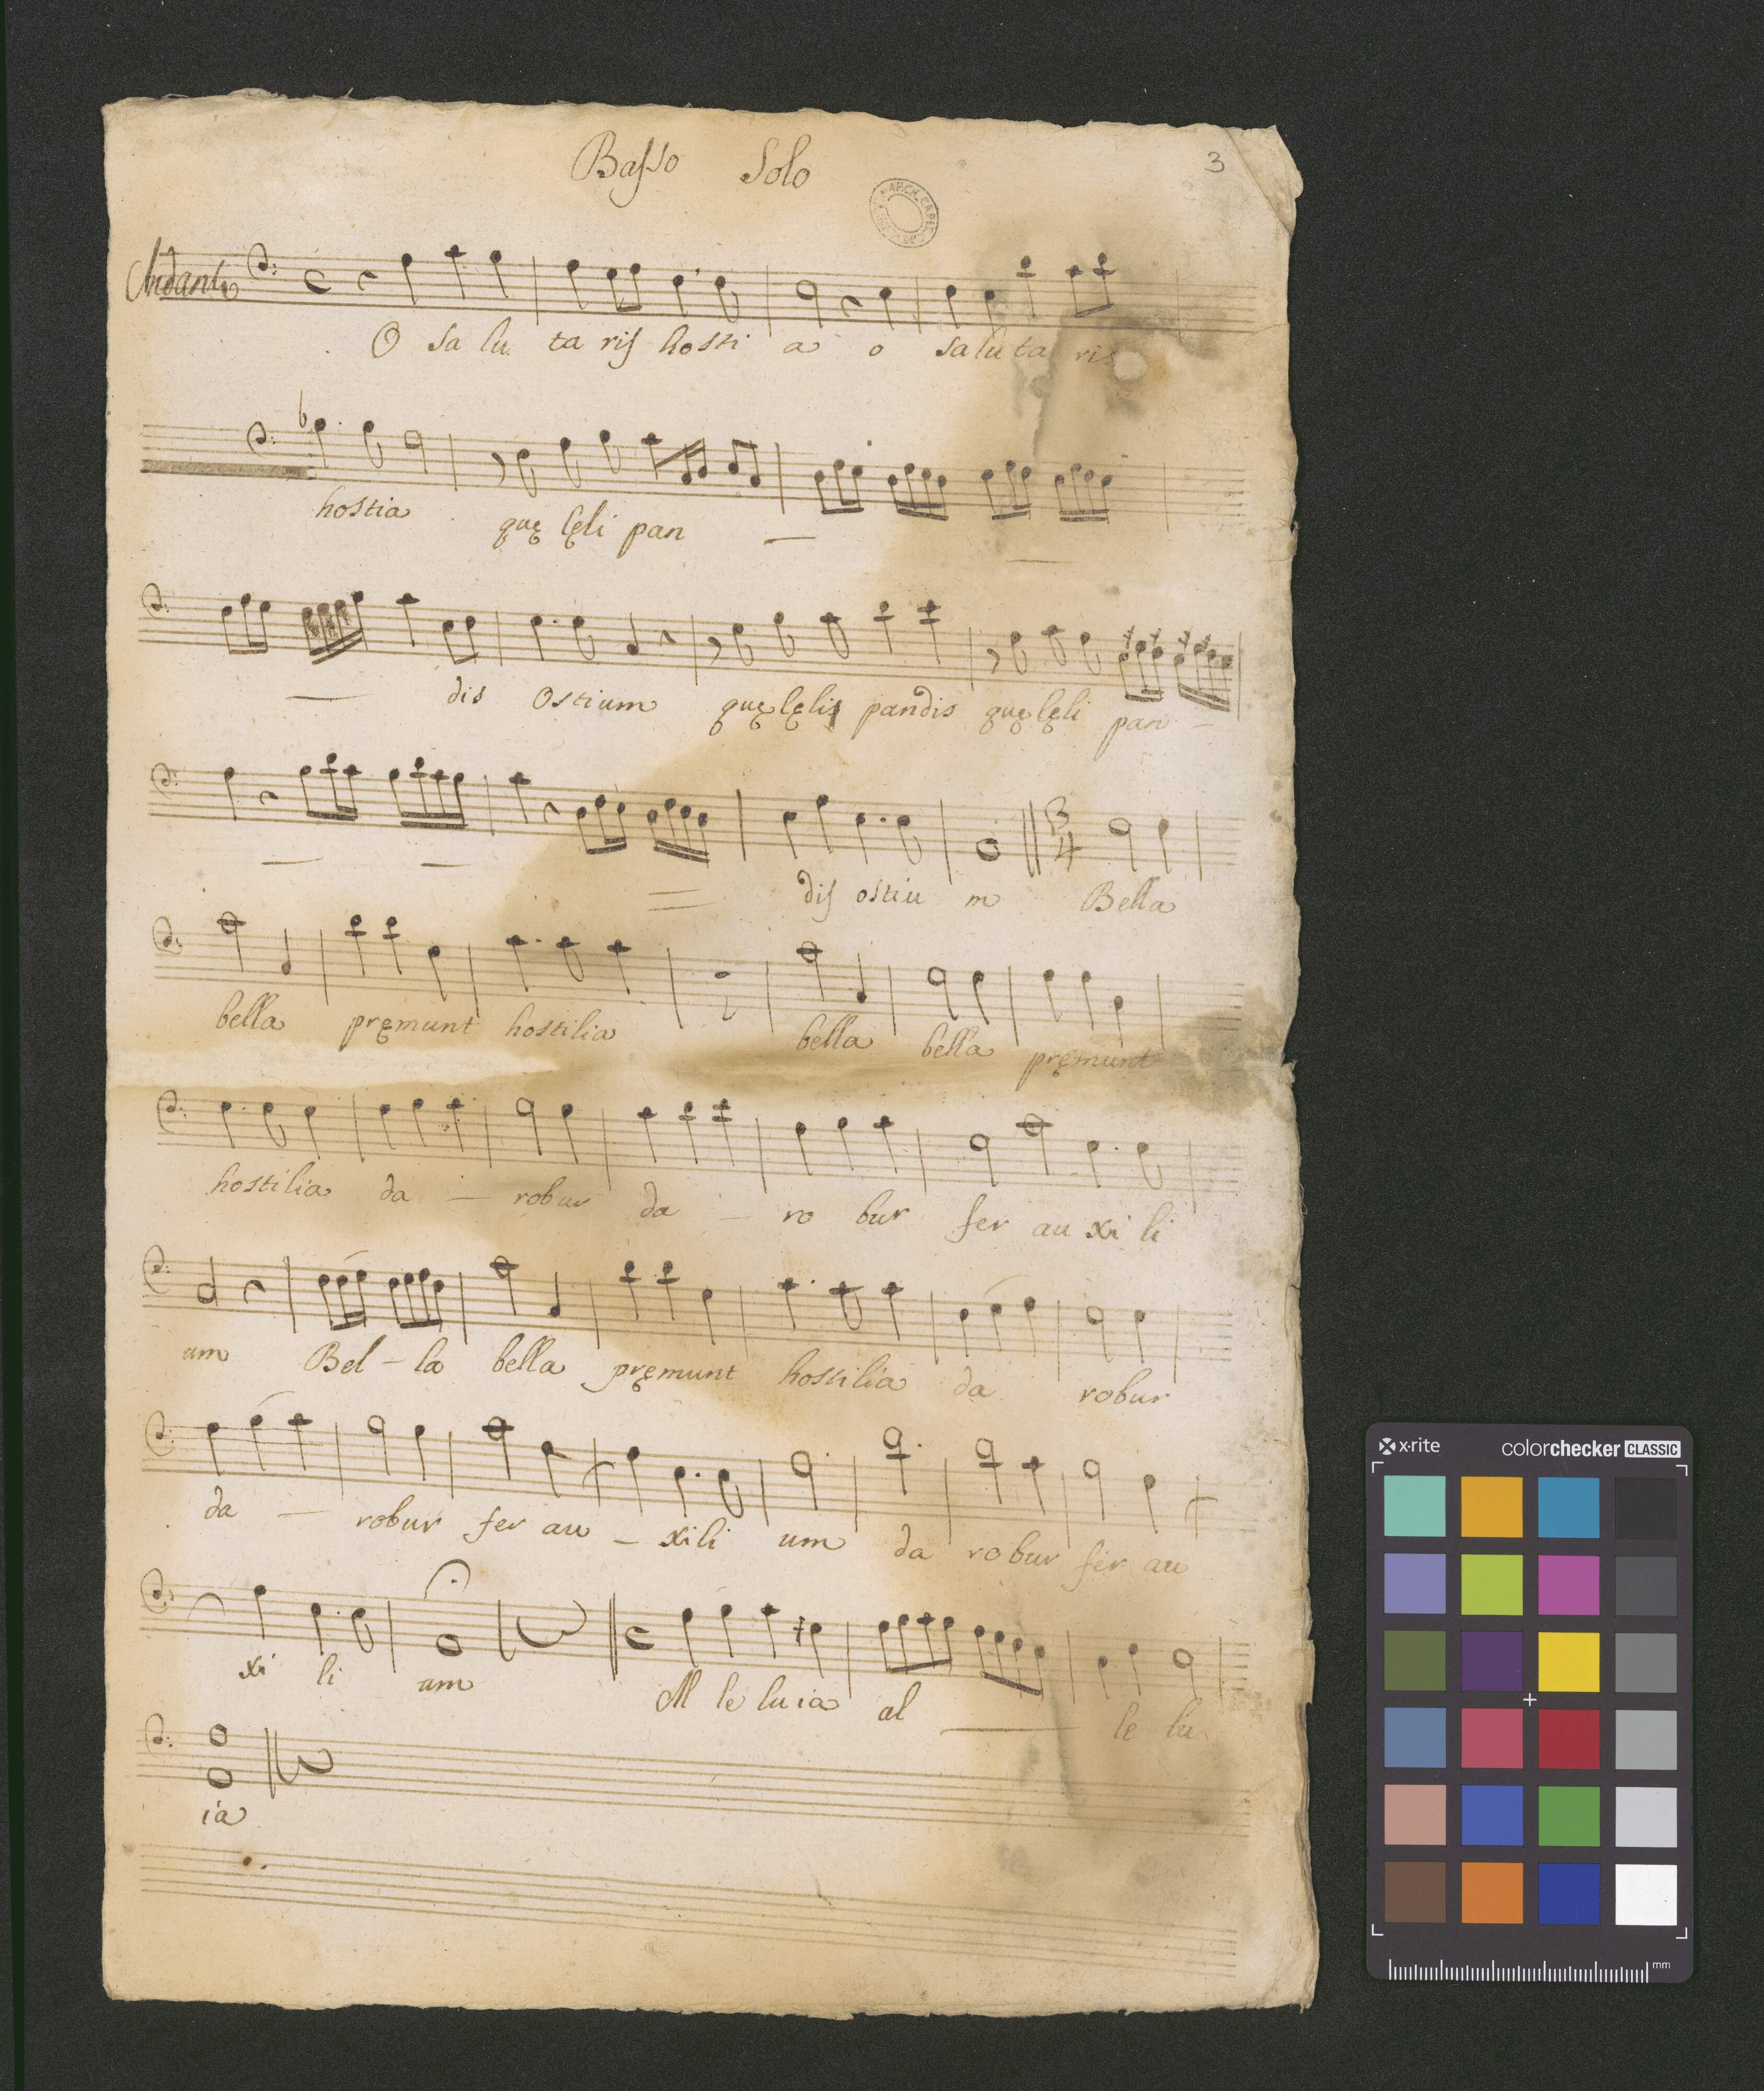 Basso Solo
3
Andante
O sa lu ta ris hosti a o salu ta ris
hostia quę cęli pan —
— dis Ostium quę cęlis pandis quę cęli pan –
— — = dis ostiu m Bella
3
4
bella pręmunt hostilia bella bella pręmunt
hostilia da — robur da — ro bur fer au xi li
um Bel – la bella pręmunt hostilia da robur
da — robur fer au – xili um da robur fer au
xi li um Al le lu ia al — le lu
ia
x-rite colorchecker CLASSIC
mm